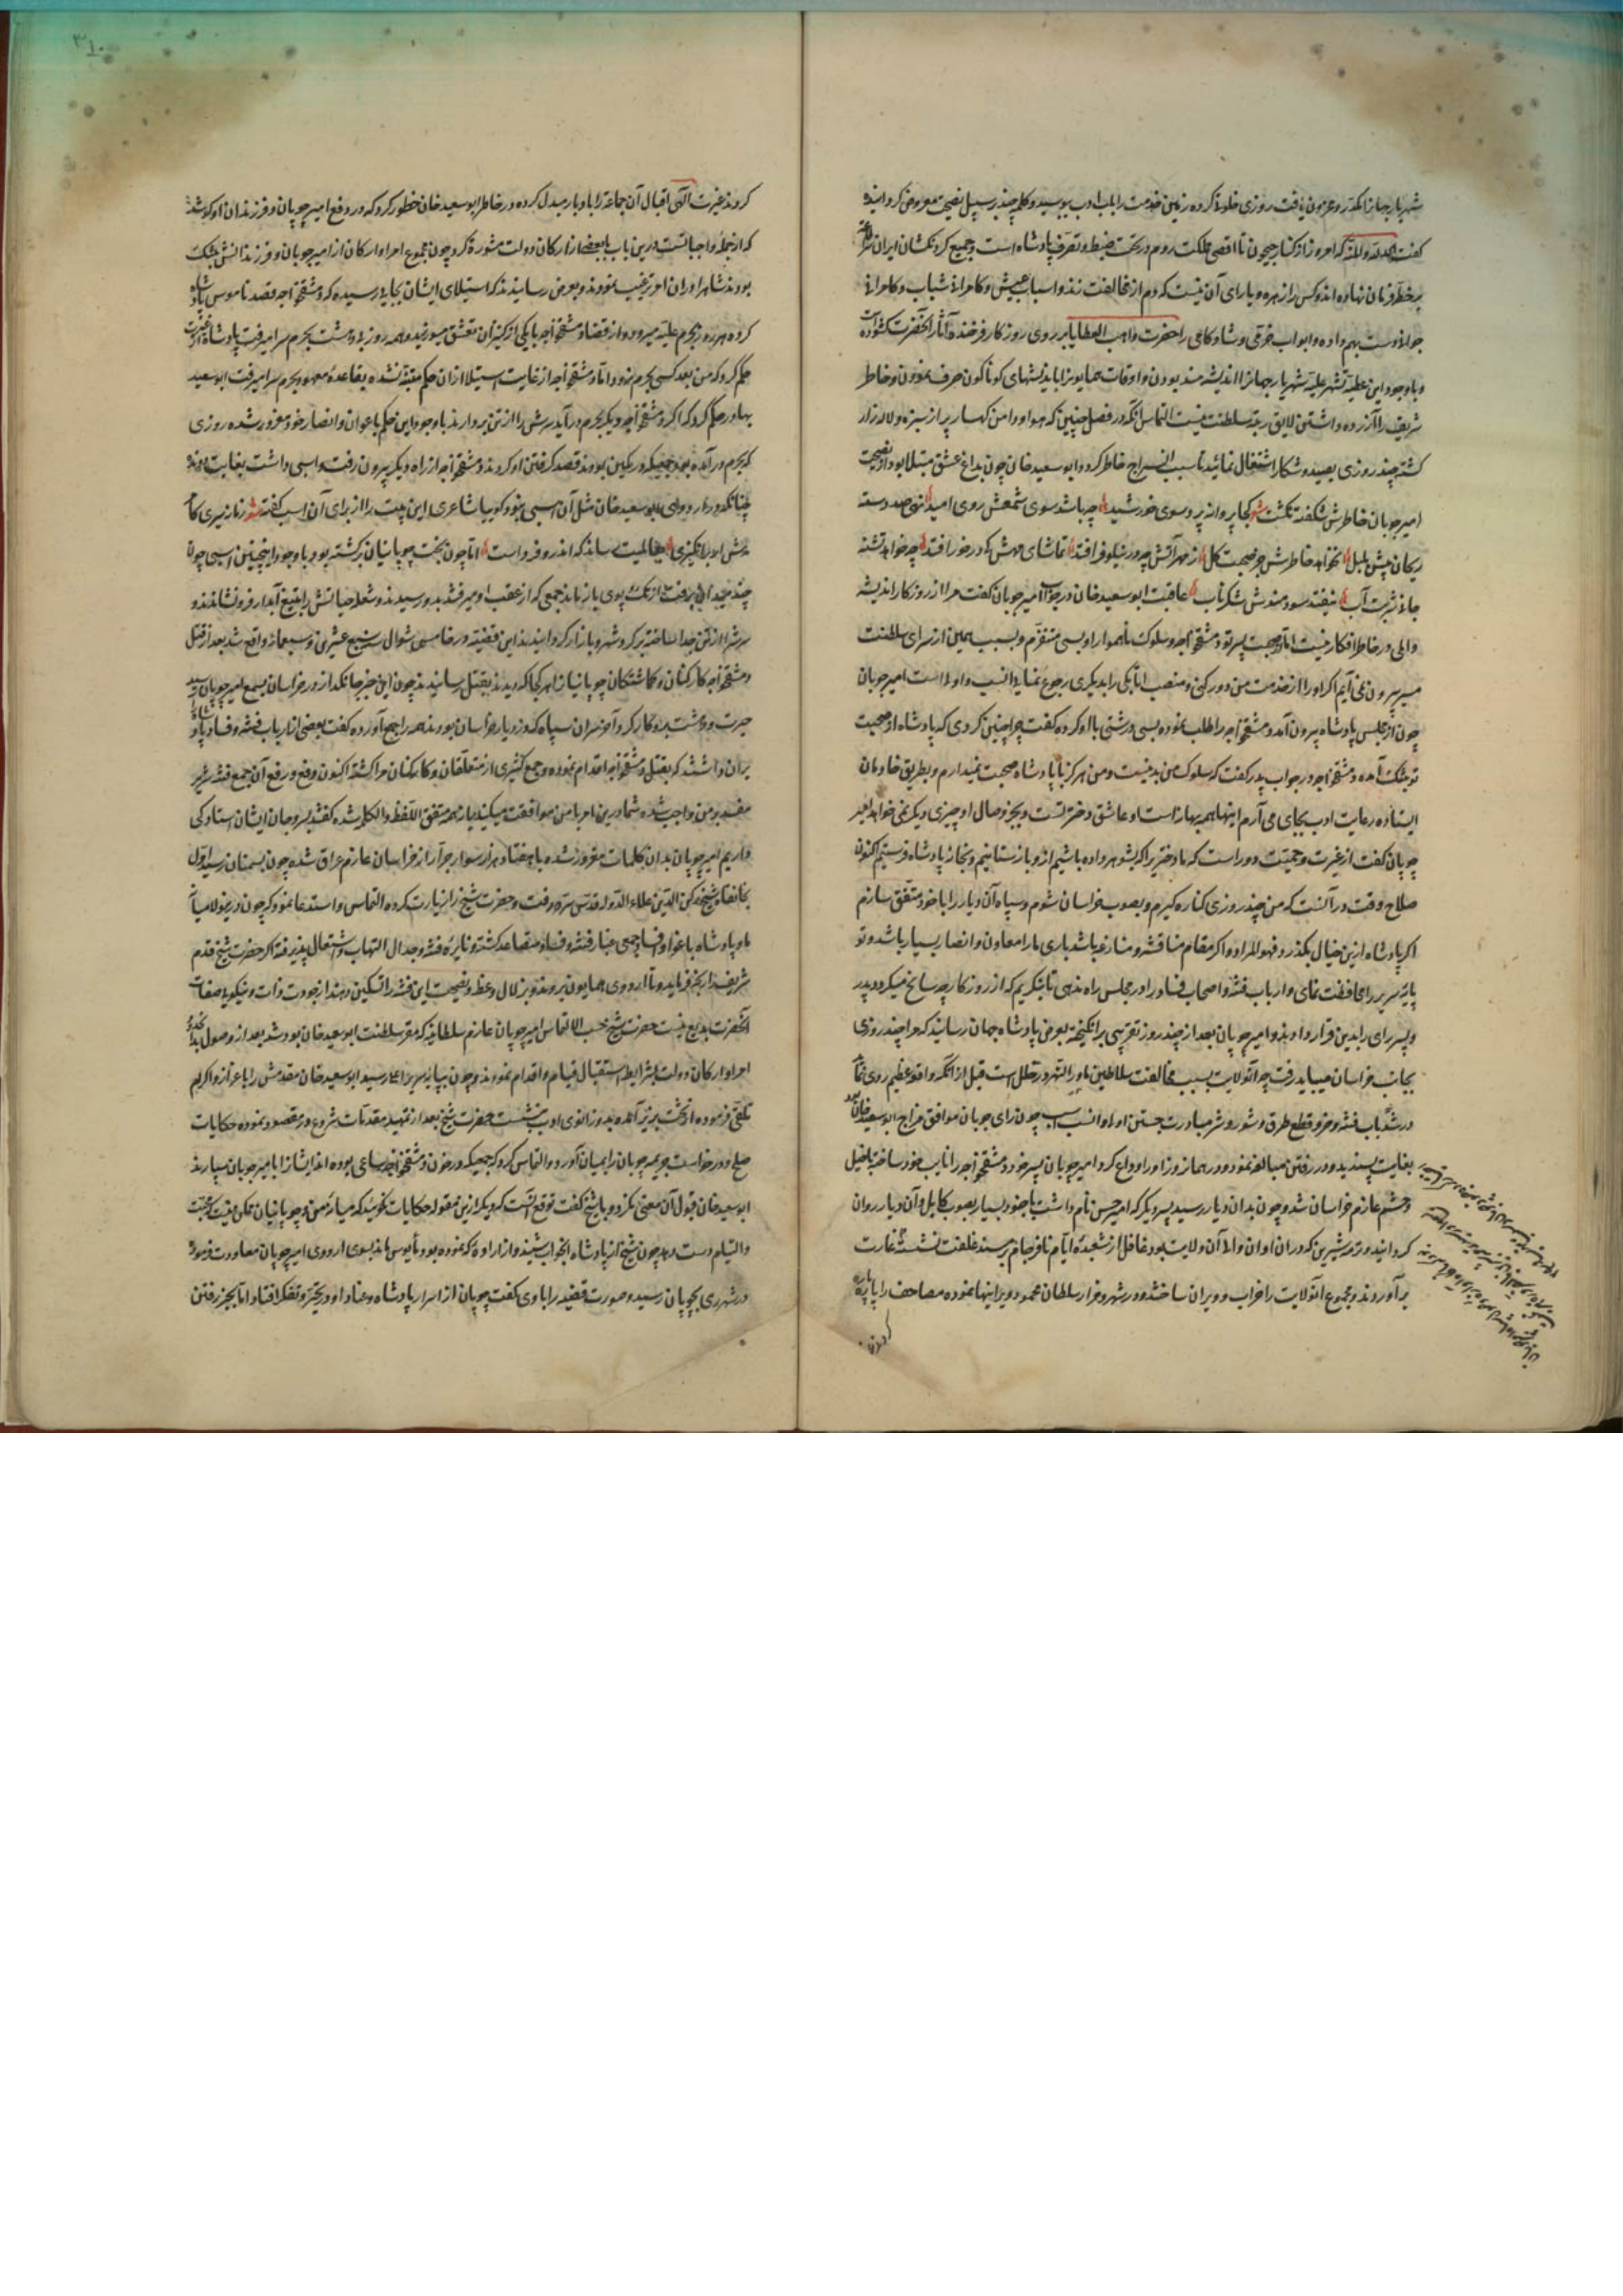 شهریار جهانرا مکدر و محزون یافت روزی خلوة کرده زمین خدمت را بلب ادب ببوسید و کلمهٔ چند بر سبیل نصیحت معروض گردانیده
گفت الحمد لله والمنة که امروز از کنار جیحون تا اقصی مملکت روم در تحت ضبط و تصرف پادشاه است و جمیع گردنکشان ایران سر
بر خط فرمان نهاده اند و کس را زهره و یارای آن نیست که دم از مخالفت زند و اسباب عیش و کامرانی شباب و کامرانی
جوانی دست بهم داده و ابواب خرمی و شادکامی را حضرت واهب العطایا بر روی روزکار فرخنده آثار آنحضرت کشوده
و با وجود این عطیّه شهریار جهانرا اندیشه مند بودن و اوقات همایونرا باندیشهای کوناکون صرف نمودن و خاطر
شریف را آزرده داشتن لایق رتبهٔ سلطنت نیست التماس آنکه در فصل چنین که هوا و دامن کهسار پر از سبزه و لاله زار
کشته چند روزی بصید و شکار اشتغال نمایند تا سبب انشراح خاطر کردد و ابو سعید خان چون بداغ عشق مبتلا بود از نصیحت
امیر چوبان خاطرش شکفته نکشت کجا پروانه پرد سوی خورشید چه باشد سوی شمعش روی امید نهی صد دسته
ریحان پیش بلبل نخواهد خاطرش جز صحبت کل ز مهر آتش چو در نیلوفر افتد تماشای مهش کی در خور افتد چو خواهد تشنه
جانی شربت آب نیفتد سودمندش شکر ناب عاقبت ابو سعید خان در جواب امیر چوبان کفت مرا از روزکار اندیشه
والی در خاطر افکار نیست اما از صحبت پسر تو دمشق خواجه و سلوک ناهموار او بسی متنفرم و بسبب همین از سرای سلطنت
بیرون نمی آیم اکر او را از خدمت من دور کنی و منصب اتابکی را بدیکری رجوع نمایی انسب و اولی است امیر چوبان
چون از مجلس پادشاه بیرون آمد دمشق خواجه را طلب نموده بسی درشتی با او کرده کفت چرا چنین کردی که پادشاه از صحبت
تو بتنک آمده دمشق خواجه در جواب پدر کفت که سلوک من بد نیست و من هرکز با پادشاه صحبت نمیدارم و بطریق خادمان
ایستاده رعایت ادب بجای می آرم اینها همه بهانه است او عاشق دختر تست و بجز وصال او چیزی دیکر نمی خواهد امیر
چوبان کفت از غیرت و حمیّت دور است که ما دختریرا که بشوهر داده باشیم ازو باز ستانیم و بخانهٔ پادشاه فرستیم اکنون
صلاح وقت در آنست که من چند روزی کناره کیرم و بصوب خراسان شوم و سپاه آن دیار را با خود متفق سازم
اکر پادشاه ازین خیال بکذرد فهو المراد و اکر مقام مناقشه و منازعه باشد باری ما را معاون و انصار بسیار باشد و تو
پایهٔ سریر را محافظت نمای و ارباب فتنه و اصحاب فساد را در مجلس راه ندهی تا بنکریم که از روزکار چه سانح میکردد پدر
و پسر رای را بدین قرار دادند و امیر چوبان بعد از چند روز تقریبی بر انکیخته بعرض پادشاه جهان رسانید که مرا چند روزی
بجانب خراسان میباید رفت چه آنولایت بسبب مخالفت سلاطین ماوراء النهر در خلل است قبل از آنکه واقعهٔ عظیم روی نماید
در سد باب فتنه و قطع طرق و شور و شر مبادرت جستن اولی و انسب چون رای چوبان موافق مزاج ابو سعید خان
بغایت پسندید و در رفتن مبالغه نمود و در همان روز او را وداع کرد امیر چوبان پسر خود دمشق خواجه را نایب خود ساخته با خیل
و حشم عازم خراسان شد و چون بدان دیار رسید پسر دیکر که امیر حسن نام داشت با جنود بسیار بصوب کابل و آن دیار روان
کردانید و ترمشیرین که در آن اوان والی آن ولایت بود غافل از شعبدهٔ ایام نافرجام بر مسند غفلت نشسته غارت
بر آوردند و مجموع آنولایت را خراب و ویران ساختند و در شهر مزار سلطان محمود ویرانیها نموده مصاحف را پاره پاره
کردند
کردند غیرت الهی اقبال آن جماعة را بادبار مبدل کرده در خاطر ابو سعید خان خطور کرد که در دفع امیر چوبان و فرزندان او کوشد
که از جملهٔ واجباتست درین باب با بعضی از ارکان دولت مشورة کرد چون مجموع امرا و ارکان از امیر چوبان و فرزندانش بتنک
بودند شاه را در آن امر ترغیب نمودند و بعرض رسانیدند که استیلای ایشان بجایی رسیده که دمشق خواجه قصد ناموس پادشاه
کرده هر روز بحرم علیه میرود و از قضا دمشق خواجه با یکی از کنیزان تعشق میورزید و همه روزه بی دهشت بحرم سرا میرفت پادشاه از غیرت
حکم کرد که من بعد کسی بحرم نرود اما دمشق خواجه از غایت استیلا از آن حکم متنبه نشده بقاعدهٔ معهود بحرم سرا میرفت ابو سعید
بهادر حکم کرد که اکر دمشق خواجه دیکر بحرم در آید سرش را از تن بر دارند با وجود این حکم باعوان و انصار خود مغرور شده روزی
که بحرم در آمده بود جمعی که در کمین بودند قصد کرفتن او کردند دمشق خواجه از راه دیکر بیرون رفت و اسبی داشت بغایت دونده
چنانکه در اردوی ابو سعید خان مثل آن اسبی نبود کوییا شاعری این بیت را از برای آن اسب کفته
اما چون بخت چوپانیان برکشته بود با وجود اینچنین اسبی چون
چند میدان برفت از تک و پوی باز ماند جمعی که از عقب او میرفتند بدو رسیدند و شعلهٔ حیاتش را بتیغ آبدار فرو نشاندند و
سرش را از تن جدا ساخته بر کرد شهر و بازار کردانیدند این قضیه در خامس شوال سنه سبع عشرین و سبعمائه واقع شد بعد از قتل
دمشق خواجه کارکنان و کماشتکان چوپانیانرا هر کجا که دیدند بقتل رسانیدند چون این خبر جانکداز در خراسان بسمع امیر چوپان رسید
حیرت و دهشت بدو کار کرد آخر سران سپاه که در دیار خراسان بودند همه را جمع آورده کفت بعضی از ارباب فتنه و فساد پادشاه را
بران داشتند که بقتل دمشق خواجه اقدام نموده و جمع کثیری از متعلقان و کارکنان مرا کشته اکنون دفع و رفع آن جمع فتنه شریر
مفسد بر من واجب شده شما درین امر با من موافقت میکنید یا نه همه متفق اللفظ و الکلمه شده کفتند بسر و جان ایشان ستادکی
داریم امیر چوپان بدان کلمات مغرور شده با هفتاد هزار سوار جرّار از خراسان عازم عراق شده چون بسمنان رسید اوّل
بخانقاه شیخ رکن الدین علاء الدوله قدس سره رفت و حضرت شیخ را زیارت کرده التماس و استدعا نمود که چون درینولا میانهٔ
ما و پادشاه باغوا و افساد جمعی غبار فتنه و فساد متصاعد کشته و نایرهٔ فتنه و جدال التهاب و اشتعال پذیرفته اکر حضرت شیخ قدم
شریف را رنجه فرمایند و تا اردوی همایون بروند و بزلال وعظ و نصیحت این فتنه را تسکین دهند از جودت ذات و نیکویی صفات
آنحضرت بدیع نیست حضرت شیخ حسب الالتماس امیر چوپان عازم سلطانیه که مقر سلطنت ابو سعید خان بود شد بعد از وصول بدانحدود
امرا و ارکان دولت بشرایط استقبال قیام و اقدام نمودند و چون بپایهٔ سریر اعلی رسید ابو سعید خان مقدمش را باعزاز و اکرام
تلقی فرموده از تخت بزیر آمده بدو زانوی ادب بنشست حضرت شیخ بعد از تمهید مقدمات شروع در مقصود نموده حکایات
صلح و درخواست جریمهٔ چوپان را بمیان آورد و التماس کرد که جمعی که در خون دمشق خواجه ساعی بوده اند ایشانرا بامیر چوپان سپارند
ابو سعید خان قبول آن معنی نکرد و با شیخ کفت توقع آنست که دیکر ازین مقوله حکایات نکویید که میانهٔ من و چوپانیان ممکن نیست که محبت
و التیام دست دهد چون شیخ از پادشاه این جواب شنید و از ارادهٔ که نموده بود مأیوس ماند بسوی اردوی امیر چوپان معاودت فرمود
در شهر ری بچوپان رسید و صورت قضیه را با وی کفت چوپان از اسرار پادشاه و عناد او در تحیر و تفکر افتاد اما بجز رفتن